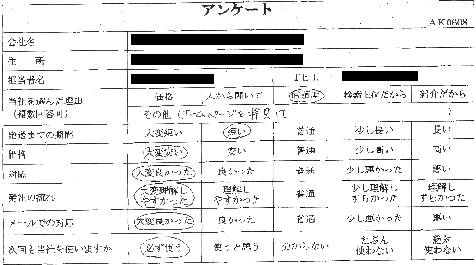 アンケート
AK0608
会社名
住 所
担当者名 TEL
当社を選んだ理由 価格 人から聞いて 信頼性 検索上位だから 紹介だから
(複数回答可) その他(ホームページを拝見して )
発送までの期間 大変短い 短い 普通 少し長い 長い
価格 大変安い 安い 普通 少し高い 高い
対応 大変良かった 良かった 普通 少し悪かった 悪い
発注の流れ 大変理解しやすかった 理解しやすかった 普通 少し理解しずらかった 理解しずらかった
メールでの対応 大変良かった 良かった 普通 少し悪かった 悪い
次回も当社を使いますか 必ず使う 使うと思う 分からない たぶん使わない 絶対使わない